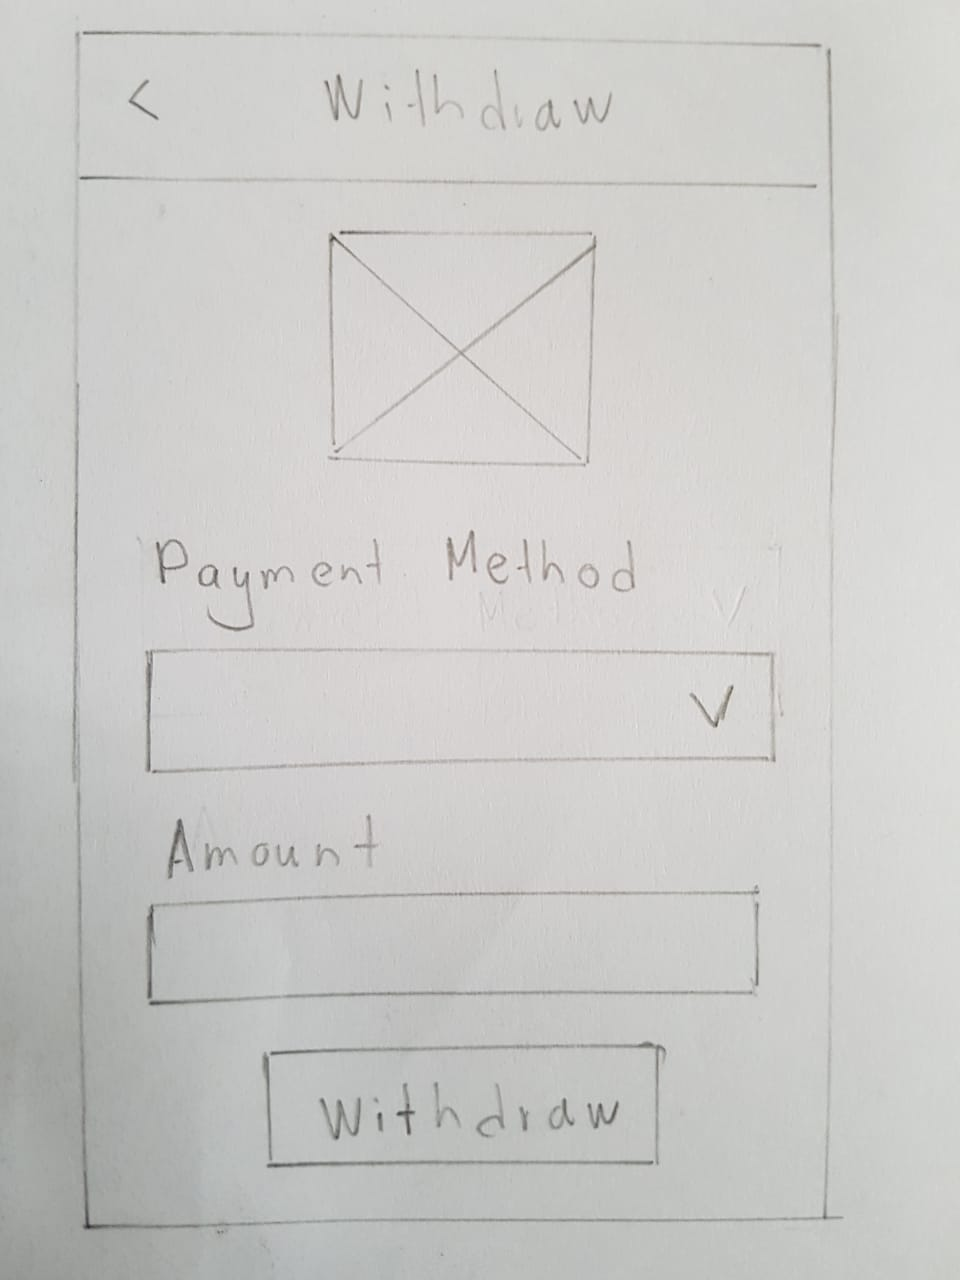 < Withdraw
Payment Method
Amount
Withdraw